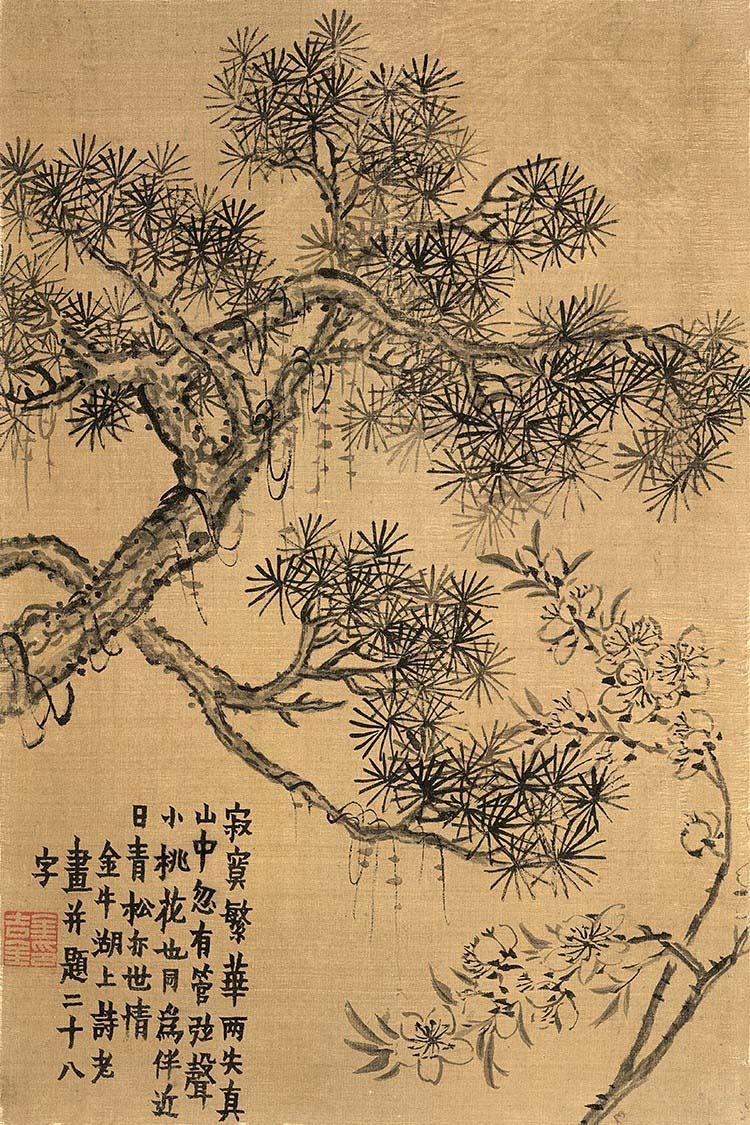 寂寞繁華兩失真
山中忽有管弦聲
小桃花也同爲伴近
日青松亦世情
金牛湖上詩老
畫并題二十八
字